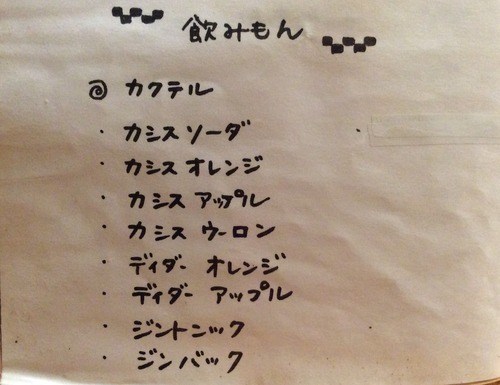 飲みもん
◎ カクテル
・ カシスソーダ
・ カシス オレンジ
・ カシス アップル
・ カシス ウーロン
・ ディダー オレンジ
・ ディダー アップル
・ ジントニック
・ ジンバック